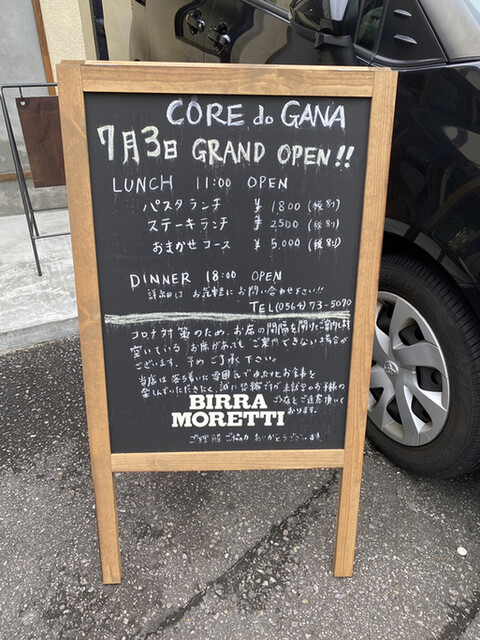 CORE do GANA
7月3日 GRAND OPEN!!
LUNCH 11:00 OPEN
パスタランチ ¥1800 (税別)
ステーキランチ ¥2500 (税別)
おまかせコース ¥5,000 (税別)
DINNER 18:00 OPEN
詳細は お気軽に お問い合わせ下さい!!
TEL(0564)73-5070
コロナ対策のため、お席の間隔を開けてご案内し
空いている お席があっても ご案内できない場合が
ございます。予め ご了承下さい。
当店は 落ち着いた雰囲気でゆったりとお食事を
楽しんでいただきたく、誠に恐縮ですが 未就学のお子様の
ご来店をご遠慮頂いて
おります。
BIRRA
MORETTI
ご理解 ご協力 ありがとうございます。